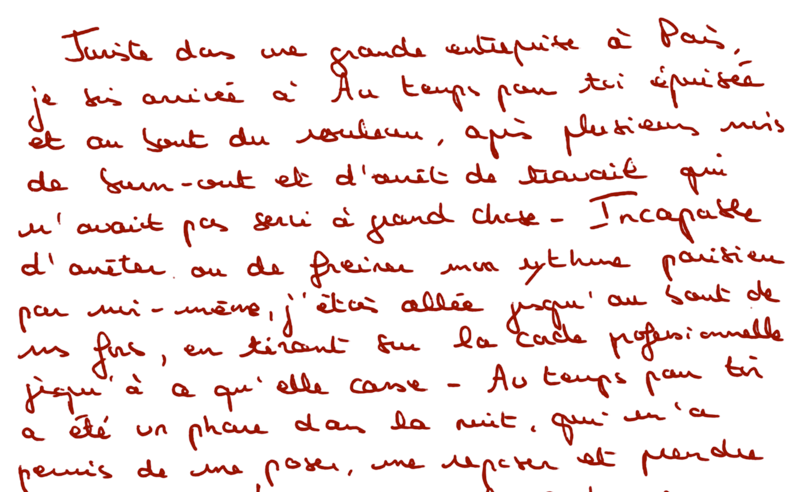 Juriste dans une grande entreprise à Paris,
je suis arrivée à Au temps pour toi épuisée
et au bout du rouleau, après plusieurs mois
de burn-out et d'arrêt de travail qui
n'avait pas servi à grand chose - Incapable
d'arrêter ou de freiner mon rythme parisien
par moi-même, j'étais allée jusqu'au bout de
mes forces, en tirant sur la corde professionnelle
jusqu'à ce qu'elle casse - Au temps pour toi
a été un phare dans la nuit, qui m'a
permis de me poser, me reposer et prendre